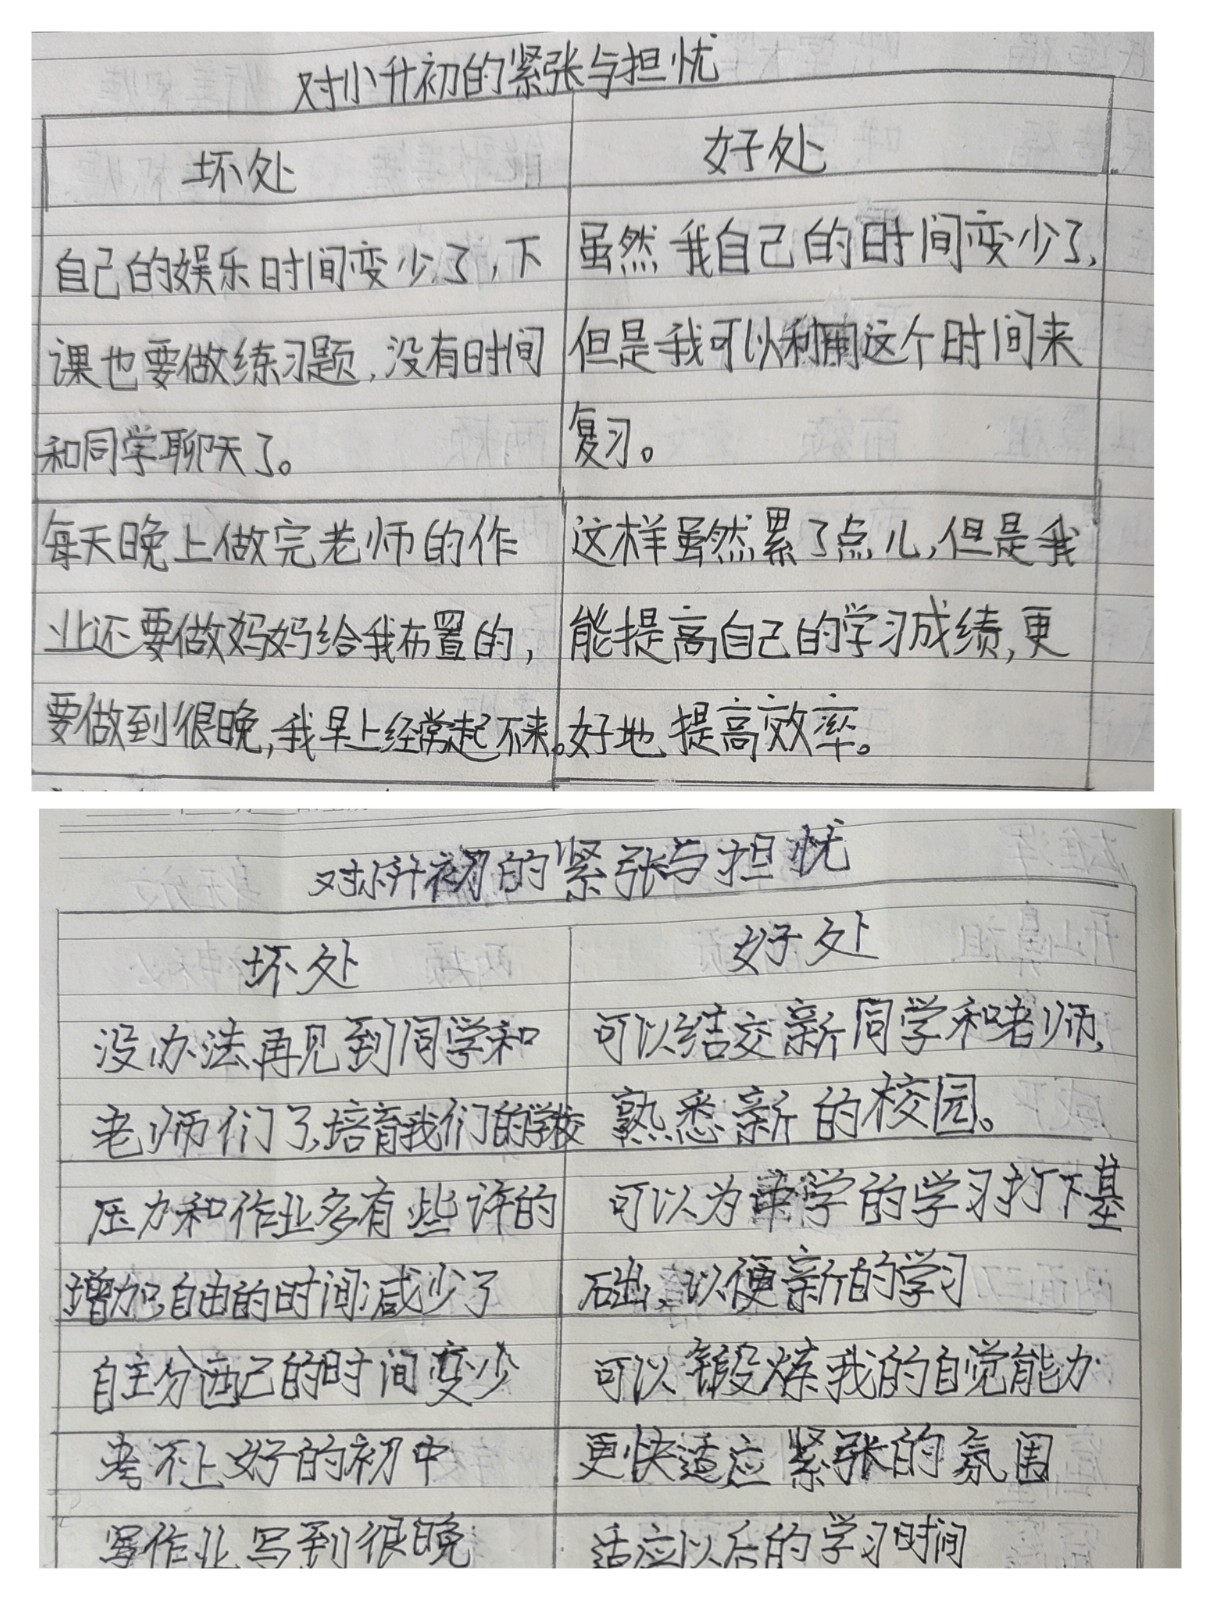 对小升初的紧张与担忧
坏处
好处
自己的娱乐时间变少了，下
课也要做练习题，没有时间
和同学聊天了。
虽然我自己的时间变少了，
但是我可以利用这个时间来
复习。
每天晚上做完老师的作
业还要做妈妈给我布置的，
要做到很晚，我早上经常起不来。
这样虽然累了点儿，但是我
能提高自己的学习成绩，更
好地提高效率。
对小升初的紧张与担忧
坏处
好处
没办法再见到同学和
老师们了，培育我们的学校
可以结交新同学和老师，
熟悉新的校园。
压力和作业多有些许的
增加，自由的时间减少了
可以为中学的学习打下基
础，以便新的学习
自主分配己的时间变少
可以锻炼我的自觉能力
考不上好的初中
更快适应紧张的氛围
写作业写到很晚
适应以后的学习时间